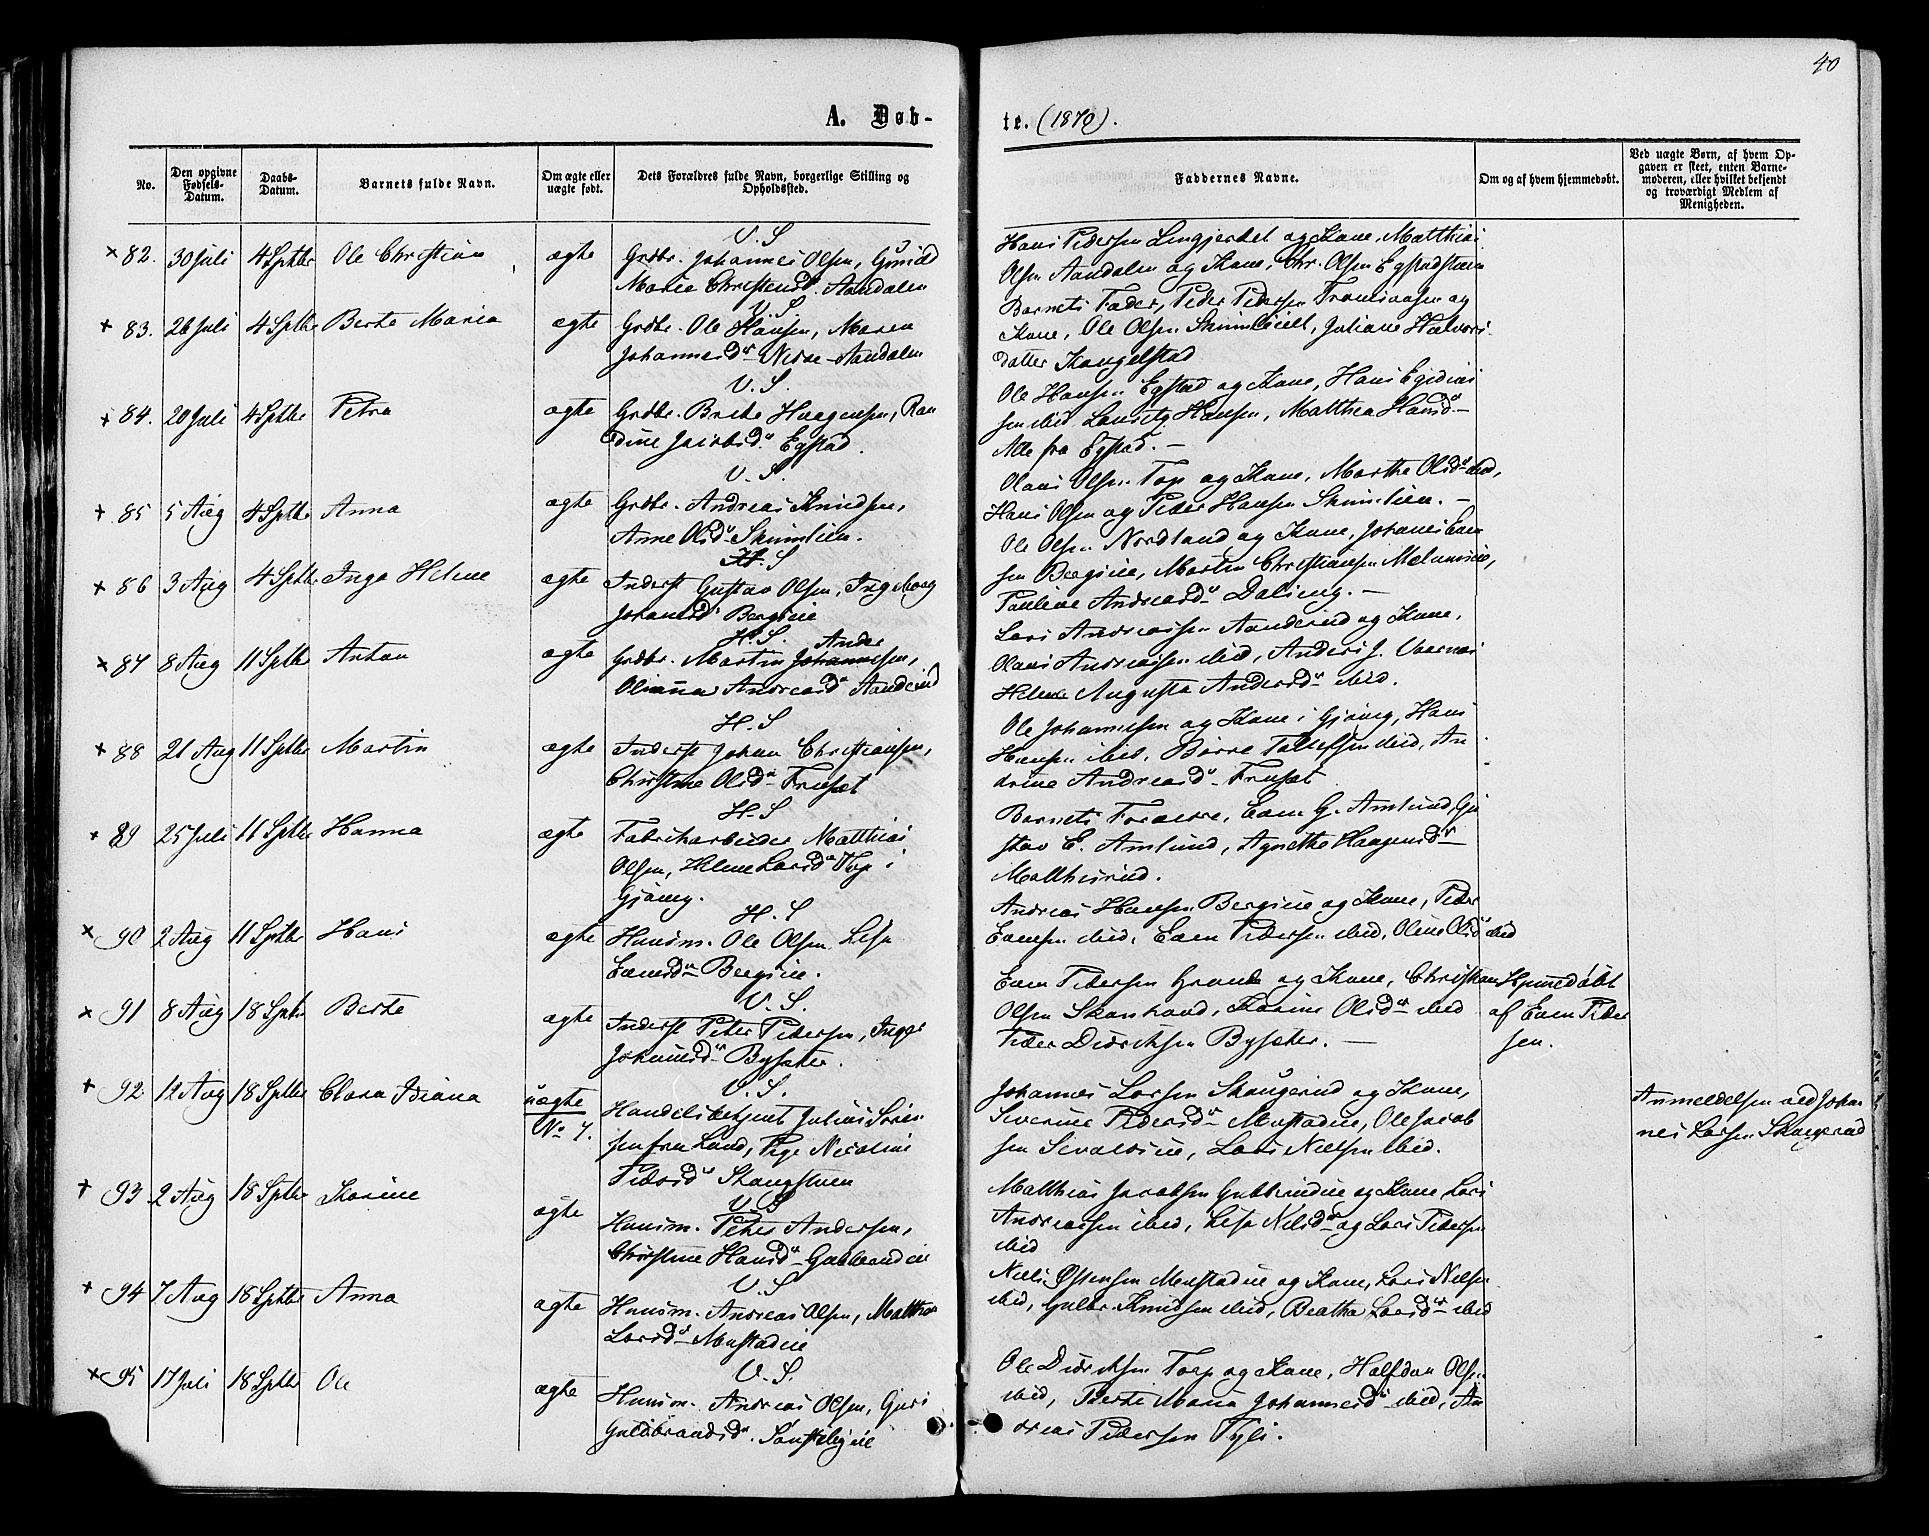 40
A. Døb-
te. (1870).
No.
Den opgivne Fødsels-Datum.
Daabs-Datum.
Barnets fulde Navn.
Om ægte eller uægte født.
Dets Forældres fulde Navn, borgerlige Stilling og Opholdssted.
Faddernes Navne.
Om og af hvem hjemmedøbt.
Ved uægte Børn, af hvem Op-
gaven er skeet, enten Barne-
moderen, eller hvilket bekjendt
og troværdigt Medlem af
Menigheden.
V. S
82. 30 Juli 4 Septbr Ole Christian ægte Grdbr. Johannes Olsen, Gunild
Marie Christensd. Aandalen
Hans Pedersen Lingjerdet og Kone, Matthias
Olsen Aandalen og Kone, Chr. Olsen Egstadstuen
V. S.
83. 26 Juli 4 Septbr Berte Maria ægte Grdbr. Ole Hansen, Maren
Johannesdr Nedre-Aandalen
Barnets Fader, Peder Pedersen og
Kone, Ole Olsen Skumlien, Juliane Halvors-
datter Kongelstad
V. S.
84. 20 Juli 4 Septbr Petra ægte Grdbr. Brede Haagensen, Ran
dine Jacobsdr Egstad.
Ole Hansen Egstad og Kone, Hans Egidius
sen ibid. Lauritz Hansen, Matthea Hansdr
Alle fra Egstad. —
V. S.
85 5 Aug 4 Septbr Anna ægte Grdbr. Andreas Knudsen,
Anne Olsdr Skumlien.
Olaus Olsen Torp og Kone, Marthe Olsdr ibid,
Hans Olsen og Peder Hansen Skumlien. —
H. S
86 3 Aug 4 Septbr Inga Helene ægte Inderst Gustav Olsen, Ing Marg
Johansdr Bergseie
Ole Olsen Nordland og Kone, Johannes Even
sen Bergseie, Martin Christiansen
Pauline Andreasdr Daling. —
H. S. Ander
87 8 Aug 11 Septbr Anton ægte Grdbr. Martin Johannesen,
Olianna Andreasdr Aanderud
Lars Andreassen Aanderud og Kone,
Olaus Andreassen ibid, Anders J.
Helene Augusta Andersdr ibid.
H. S
88 21 Aug 11 Septbr Martin ægte Inderst Johan Christiansen,
Christine Olsdr Fruset
Ole Johannessen og Kone i Gjøvig, Hans
Hansen ibid, Børre Tollefsen ibid, An
drine Andreasdr Fruset
H. S
89 25 Juli 11 Septbr Hanna ægte Fabrikarbeider Matthias
Olsen, Helene Larsdr Torp i
Gjøvig.
Barnets Forældre, Even G. Amlund, Gu
stav E. Amlund, Agnethe Haagensdr
Matthisrud.
H. S
90 2 Aug 11 Septbr Hans ægte Huusm. Ole Olsen, Lisa
Evensdr Bergseie.
Andreas Hansen Bergseie og Kone, Peder
Evensen ibid, Even Pedersen ibid, Oline Olsdr ibid
V. S.
91 8 Aug 18 Septbr Berte ægte Inderst Peter Pedersen, Inger
Johannesdr Bysæter.
Even Pedersen Grande og Kone, Christian
Olsen Skonhovd, Karine Olsdr ibid
Peder Didriksen Bysæter. —
Hjemmedøbt
af Even Peder
sen.
V. S.
92 12 Aug 18 Septbr Clara Idiana uægte
No 7.
Handelsbetjent Julius Sören
sen fra Land, Pige Nicoline
Pedersdr Skaugstuen
Johannes Larsen Skaugerud og Kone,
Severine Pedersdr Mustadeie, Ole Jacob
sen Sevaldseie, Lars Nielsen ibid.
Anmeldelsen ved Johan
nes Larsen Skaugerud
V. S
93 2 Aug 18 Septbr Karine ægte Huusm. Peder Andersen,
Christine Hansdr Gubberudeie
Matthias Jacobsen Gubberudeie og Kone, Lars
Andreassen ibid, Lisa Nilsdr og Lars Pedersen
ibid
V. S
94 7 Aug 18 Septbr Anna ægte Huusm. Andreas Olsen, Matthea
Larsdr Mustadeie
Niels Østensen Mustadeie og Kone, Lars Nielsen
ibid, Gulbr. Knudsen ibid, Beathe Larsdr ibid
V. S.
95 17 Juli 18 Septbr Ole ægte Huusm. Andreas Olsen, Guri
Guldbrandsdr.
Ole Didriksen Torp og Kone, Halfdan Olsen
ibid, Berte Maria Johannesdr ibid, An
dreas Pedersen Tyli.